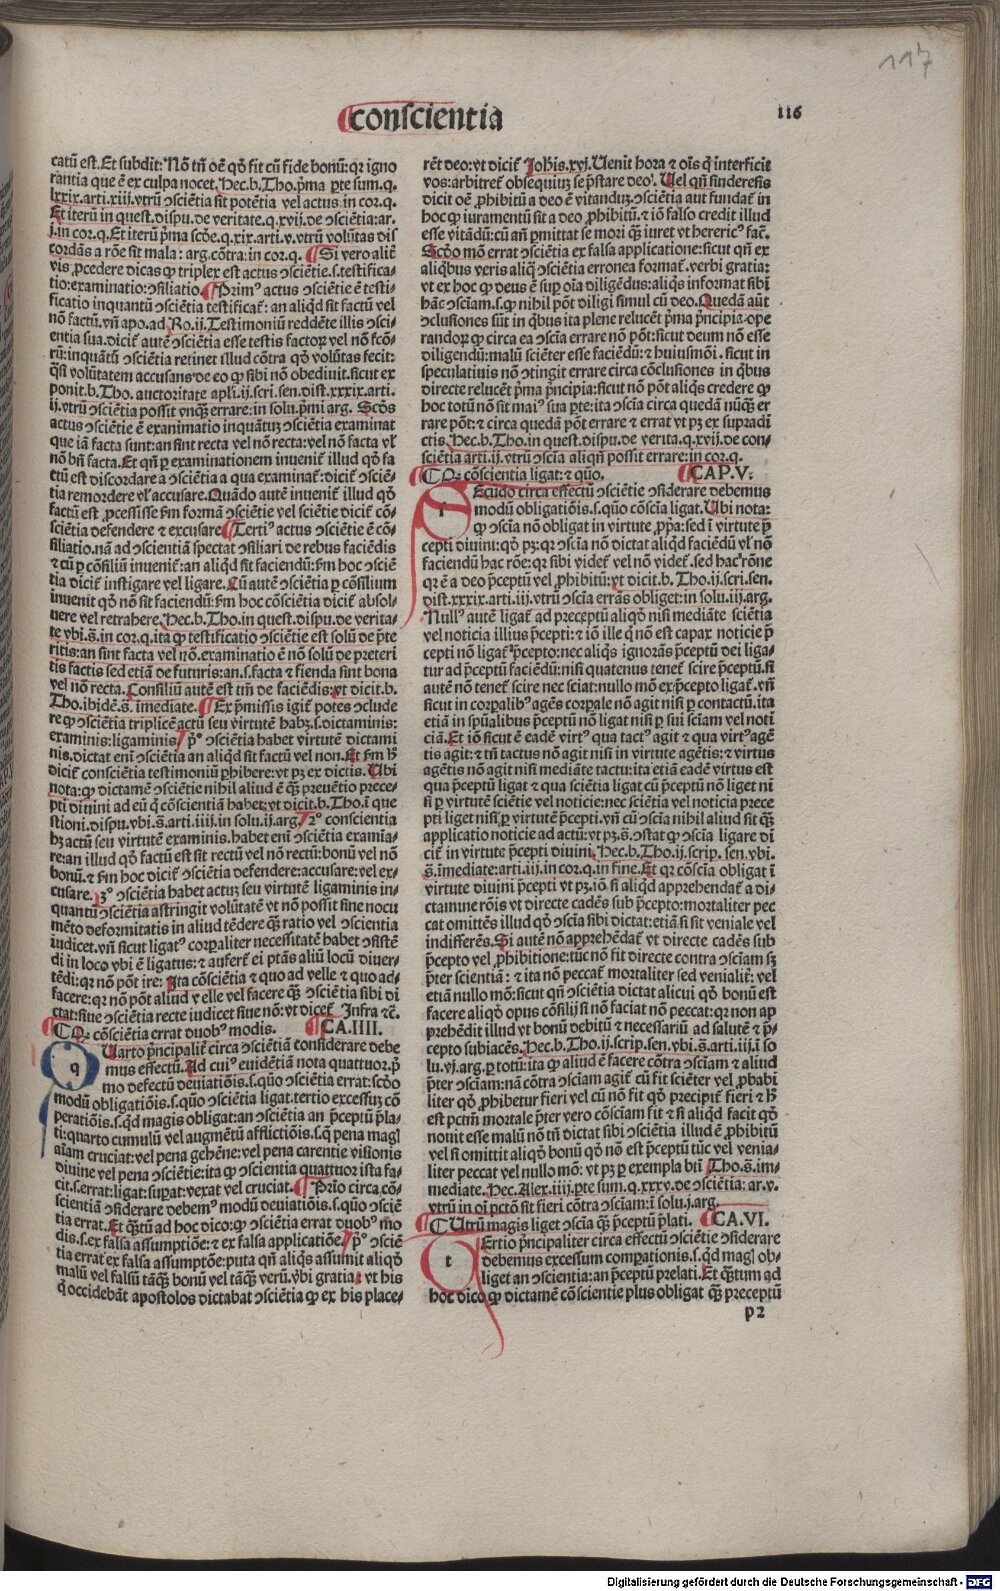 117
conscientia
116
catū est. Et subdit: Nō tn̄ oē qḋ fit cū fide bonū: qꝛ igno
rantia que ē ex culpa nocet. Hec.b.Tho.p̄ma p̄te sum.q.
lxxix.arti.xiij.vtrū ↄscientia sit potētia vel actus in cor.q.
Et iterū in quest.dispu.de veritate.q.xvij.de ↄsciētia:ar.
j.in cor.q. Et iterū p̄ma scḋe.q.xix.arti.v.vtrū volūtas dis
cordās a rōe sit mala: arg.cōtra:in cor.q. Si vero alit̄
vis ꝓcedere dicas ꝙ triplex est actus ↄsciētie.s.testifica-
tio:examinatio:ↄsiliatio. Primꝰ actus ↄsciētie ē testi-
ficatio inquantū ↄscientia testificat̄: an aliqd sit factū vel
nō factū.vn̄ apo.ad Ro.ij.Testimoniū reddēte illis ↄsci-
entia sua.dicit̄ autē ↄsciētia esse testis factoꝝ vel nō fctō-
rū:inquātū ↄsciētia retinet illud cōtra qḋ volūtas fecit:
q̄si volūtatem accusans de eo ꝙ sibi nō obedivit.sicut ex
ponit.b.Tho. auctoritate apl̄i.ij.scri.sen.dist.xxxix.arti.
ij.vtrū ↄsciētia possit vnq̄ errare:in solu.p̄mi arg. Scḋs
actus ↄsciētie ē exanimatio inquātuꝫ ↄsciētia examinat
que iā facta sunt:an sint recta vel nō recta:vel nō facta vl̄
nō bn̄ facta.Et qn̄ ꝑ examinationem invenit̄ illud qḋ fa
ctū est discordare a ↄsciētia a qua examinat̄:dicit̄ ↄsciē-
tia remordere vl̄ accusare.Quādo autē invenit̄ illud qḋ
factū est ꝓcessisse s̄m formā ↄsciētie vel sciētie dicit̄ cō-
sciētia defendere & excusare Tertiꝰ actus ↄsciētie ē cō-
siliatio.nā ad ↄscientiā spectat ↄsiliari de rebus faciēdis
& cū ꝑ cōsiliū invenit̄:an aliqd sit faciendū:s̄m hoc ↄsciē
tia dicit̄ instigare vel ligare. Cū autē ↄsciētia ꝑ cōsilium
invenit qḋ nō sit faciendū:s̄m hoc cōsciētia dicit̄ absol-
vere vel retrahere. Hec.b.Tho.in quest.dispu.de verita-
te vbi.s̄.in cor.q.ita ꝙ testificatio ↄsciētie est solū de p̄te
ritis:an sint facta vel nō.examinatio ē nō solū de preteri
tis factis sed etiā de futuris:an.s.facta & fienda sint bona
vel nō recta.Consiliū autē est tm̄ de faciēdis:vt dicit.b.
Tho.ibidē.s̄.imediate. Ex p̄missis igit̄ potes ↄclude
re ꝙ ↄsciētia triplicē actū seu virtutē habꝫ.s.dictaminis:
examinis:ligaminis pº ↄsciētia habet virtutē dictami
nis.dictat eni ↄsciētia an aliqd sit factū vel non.Et s̄m h̄
dicit̄ consciētia testimoniū ꝑhibere:vt pꝫ ex dictis. Ubi
nota:ꝙ dictamē ↄsciētie nihil aliud ē q̄ꝫ ꝑventio prece-
pti divini ad eū q̄ cōscientiā habet:vt dicit.b.Tho.ī que
stioni.dispu.vbi.s̄.arti.iiij.in solu.ij.arg. 2º conscientia
hꝫ actū seu virtutē examinis.habet eni ↄsciētia examīa-
re:an illud qḋ factū est sit rectū vel nō rectū:bonū vel nō
bonū.& s̄m hoc dicit̄ ↄsciētia defendere:accusare:vel ex-
cusare. 3º ↄsciētia habet actuꝫ seu virtutē ligaminis in-
quantū ↄsciētia astringit volūtatē vt nō possit sine nocu
mēto deformitatis in aliud tēdere q̄ꝫ ratio vel ↄscientia
iudicet.vn̄ sicut ligatꝰ corꝑaliter necessitatē habet ↄsistē
di in loco vbi ē ligatus:& aufert̄ ei ptās aliū locū diver-
tēdi:qꝛ nō pōt ire: Ita cōsciētia & quo ad velle & quo ad-
facere:qꝛ nō pōt aliud velle vel facere q̄ꝫ ↄsciētia sibi di
ctat:sive ↄsciētia recte iudicet sive nō:vt dicet̄ Infra &c̄.
Qꝛ cōsciētia errat duobꝰ modis. CA.IIII.
q
Uarto p̄ncipalit̄ circa ↄsciētiā considerare debe
mus effectū.Ad cuiꝰ euidētiā nota quattuor.pº
mo defectū deviatiōis.s.quō ↄsciētia errat:scḋo
modū obligatiōis.s.quō ↄsciētia ligat.tertio excessuꝫ cō
peratiōis.s.qd magis obligat:an ↄsciētia an p̄ceptū p̄la-
ti:quarto cumulū vel augmētū afflictiōis.s.q̄ pena magꝭ
aīam cruciat:vel pena gehēne:vel pena carentie visionis
divine vel pena ↄsciētie:ita ꝙ ↄscientia quattuor ista fa-
cit.s.errat:ligat:suꝑat:vexat vel cruciat. Prīo circa cō-
scientiā ↄsiderare debemꝰ modū deviatiōis.s.quō ↄsciē
tia errat.Et q̄ꝫtū ad hoc dico:ꝙ ↄsciētia errat duobꝰ mo
dis.s.ex falsa assumptiōe:& ex falsa applicatiōe. pº ↄsciē
tia errat ex falsa assumptōe:puta qn̄ aliqs assumit aliqḋ
malū vel falsū tāq̄ꝫ bonū vel tāq̄ꝫ verū.vbi gratia: vt his
q̇ occidebāt apostolos dictabat ↄsciētia ꝙ ex his place-
rēt deo:vt dicit̄ Joh̄is.xvj.Uenit hora & oīs q̇ interficit
vos:arbitret̄ obsequiuꝫ se p̄stare deoꝰ. Uel qn̄ sinderesis
dicit oē ꝓhibitū a deo ē vitanduꝫ.ↄsciētia aut fundat̄ in
hoc ꝙ iuramentū sit a deo ꝓhibitū.& iō falso credit illud
esse vitādū:cū an̄ ꝑmittat se mori q̄ꝫ iuret vt hereticꝰ fac̄.
Scḋo mō errat ↄsciētia ex falsa applicatione:sicut qn̄ ex
aliqbus veris aliq̄ ↄsciētia erronea format̄.verbi gratia:
vt ex hoc ꝙ deus ē suꝑ oīa diligēdus:aliqs informat sibi
hāc ↄsciam.s.ꝙ nihil pōt diligi simul cū deo.Quedā aūt
ↄclusiones sūt in qbus ita plene relucēt p̄ma p̄ncipia oꝑe
randoꝝ ꝙ circa ea ↄscia errare nō pōt:sicut deum nō esse
diligendū:malū sciēter esse faciēdū:& huiusmōi.sicut in
speculativis nō ↄtingit errare circa cōclusiones in qbus
directe relucēt p̄ma p̄ncipia:sicut nō pōt aliqs credere ꝙ
hoc totū nō sit maiꝰ sua ꝑte:ita ↄscia circa quedā nūq̄ꝫ er
rare pōt:& circa quedā pōt errare & errat vt pꝫ ex supradi
ctis.Hec.b.Tho.in quest.dispu.de verita.q.xvij.de con-
sciētia arti.ij.vtrū ↄscia aliqn̄ possit errare:in cor.q.
Qꝛ cōscientia ligat:& quō. CAP.V.
s
Ecudo circa effectū ↄsciētie ↄsiderare debemus
modū obligatiōis.s.quō cōscia ligat.Ubi nota:
ꝙ ↄscia nō obligat in virtute ꝓpa:sed ī virtute p̄
cepti divini:qḋ pꝫ:qꝛ ↄscia nō dictat aliqd faciēdū vl̄ nō
faciendū hac rōe:qꝛ sibi videt̄ vel nō videt̄.sed hac rōne
qꝛ ē a deo p̄ceptū vel ꝓhibitū:vt dicit.b.Tho.ij.scri.sen.
dist.xxxix.arti.iij.vtrū ↄscia errās obliget:in solu.iij.arg.
Nullꝰ autē ligat̄ ad preceptū aliqḋ nisi mediāte sciētia
vel noticia illius p̄cepti:& iō ille q̇ nō est capax noticie p̄
cepti nō ligat̄ p̄cepto:nec aliqs ignorās p̄ceptū dei liga-
tur ad p̄ceptū faciēdū:nisi quatenus tenet̄ scire p̄ceptū.si
autē nō tenet̄ scire nec sciat:nullo mō ex p̄cepto ligat̄.vn̄
sicut in corꝑalibꝰ agēs corꝑale nō agit nisi ꝑ contactū.ita
etiā in spūalibus p̄ceptū nō ligat nisi ꝑ sui sciam vel noti
ciā.Et iō sicut ē eadē virtꝰ qua tactꝰ agit & qua virtꝰ agē
tis agit:& tn̄ tactus nō agit nisi in virtute agētis:& virtus
agētis nō agit nisi mediāte tactu:ita etiā eadē virtus est
qua p̄ceptū ligat & qua sciētia ligat cū p̄ceptū nō liget ni
si ꝑ virtutē sciētie vel noticie:nec sciētia vel noticia prece
pti liget nisi ꝑ virtutē p̄cepti.vn̄ cū ↄscia nihil aliud sit q̄ꝫ
applicatio noticie ad actū:vt pꝫ.s̄.ↄstat ꝙ ↄscia ligare di
cit̄ in virtute p̄cepti divini.Hec.b.Tho.ij.scrip.sen.vbi.
s̄.imediate:arti.iij.in cor.q.in fine.Et qꝛ cōscia obligat ī
virtute divini p̄cepti vt pꝫ.iō si aliqd apprehendat̄ a di-
ctamine rōis vt directe cadēs sub p̄cepto:mortaliter pec
cat omittēs illud qḋ ↄscia sibi dictat:etiā si sit veniale vel
indifferēs.Si autē nō apprehēdat̄ vt directe cadēs sub
p̄cepto vel ꝓhibitione:tūc nō fit directe contra ↄsciam sꝫ
p̄ter scientiā: & ita nō peccat̄ mortaliter sed venialit̄: vel
etiā nullo mō:sicut qn̄ ↄscientia dictat alicui qḋ bonū est
facere aliqḋ opus cōsilij si nō faciat nō peccat:qꝛ non ap
prehēdit illud vt bonū debitū & necessariū ad salutē & p̄-
cepto subiacēs.Hec.b.Tho.ij.scrip.sen.vbi.s̄.arti.iij.ī so
lu.vj.arg.ꝑ totū:ita ꝙ aliud ē facere cōtra ↄsciam & aliud
p̄ter ↄsciam:nā cōtra ↄsciam agit̄ cū fit sciēter vel ꝓbabi
liter qḋ ꝓhibetur fieri vel cū nō fit qḋ precipit̄ fieri & h̄
est pctm̄ mortale p̄ter vero cōsciam fit & si aliqd facit qḋ
novit esse malū nō tn̄ dictat sibi ↄsciētia illud ē ꝓhibitū
vel si omittit aliqḋ bonū qḋ nō est p̄ceptū tūc vel venia-
liter peccat vel nullo mō: vt pꝫ ꝑ exempla bt̄i Tho.s̄.im-
mediate. Hec.Alex.iiij.ꝑte sum.q.xxxv.de ↄsciētia: ar.v.
vtrū in oī pctō sit fieri cōtra ↄsciam:ī solu.j.arg.
Utrū magis liget ↄscia q̄ꝫ p̄ceptū p̄lati. CA.VI.
t
Ertio p̄ncipaliter circa effectū ↄsciētie ↄsiderare
debemus excessum comꝑationis.s.qd magꝭ ob-
liget an ↄscientia:an p̄ceptū prelati.Et q̄ꝫtum ad
hoc dico ꝙ dictamē cōscientie plus obligat q̄ꝫ preceptū
p2
Digitalisierung gefördert durch die Deutsche Forschungsgemeinschaft - DFG